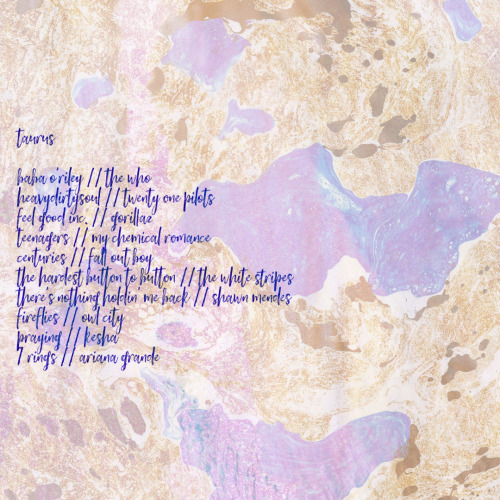 taurus
baba o'riley // the who
heavydirtysoul // twenty one pilots
feel good inc. // gorillaz
teenagers // my chemical romance
centuries // fall out boy
the hardest button to button // the white stripes
there's nothing holdin' me back // shawn mendes
fireflies // owl city
praying // kesha
7 rings // ariana grande